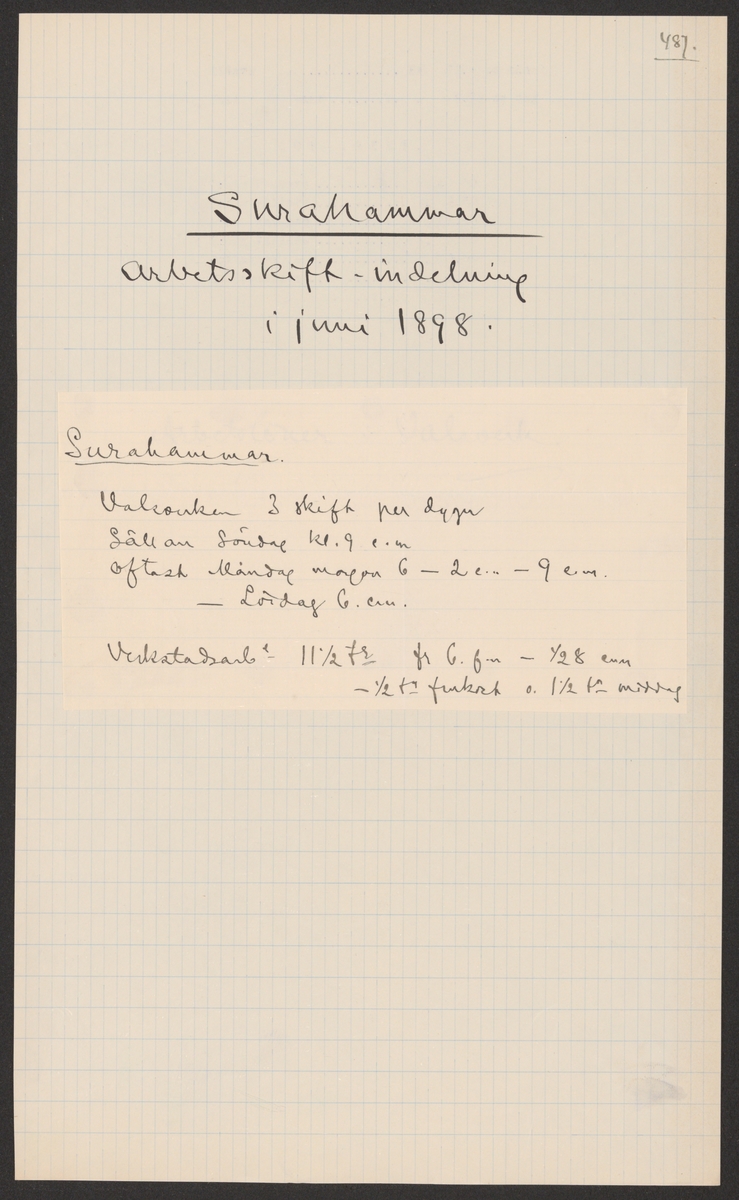 487.
Surahammar
Arbetsskift-indelning
i juni 1898.
Surahammar.
Valsverken 3 skift per dygn
Sällan Söndag kl. 9 e.m
oftast Måndag morgon 6 — 2 e.m. — 9 e.m.
— Lördag 6. em.
Verkstadsarb. 11 1/2 t. fr 6. f.m — 1/2 8 em
— 1/2 t. frukost o. 1 1/2 t. middag